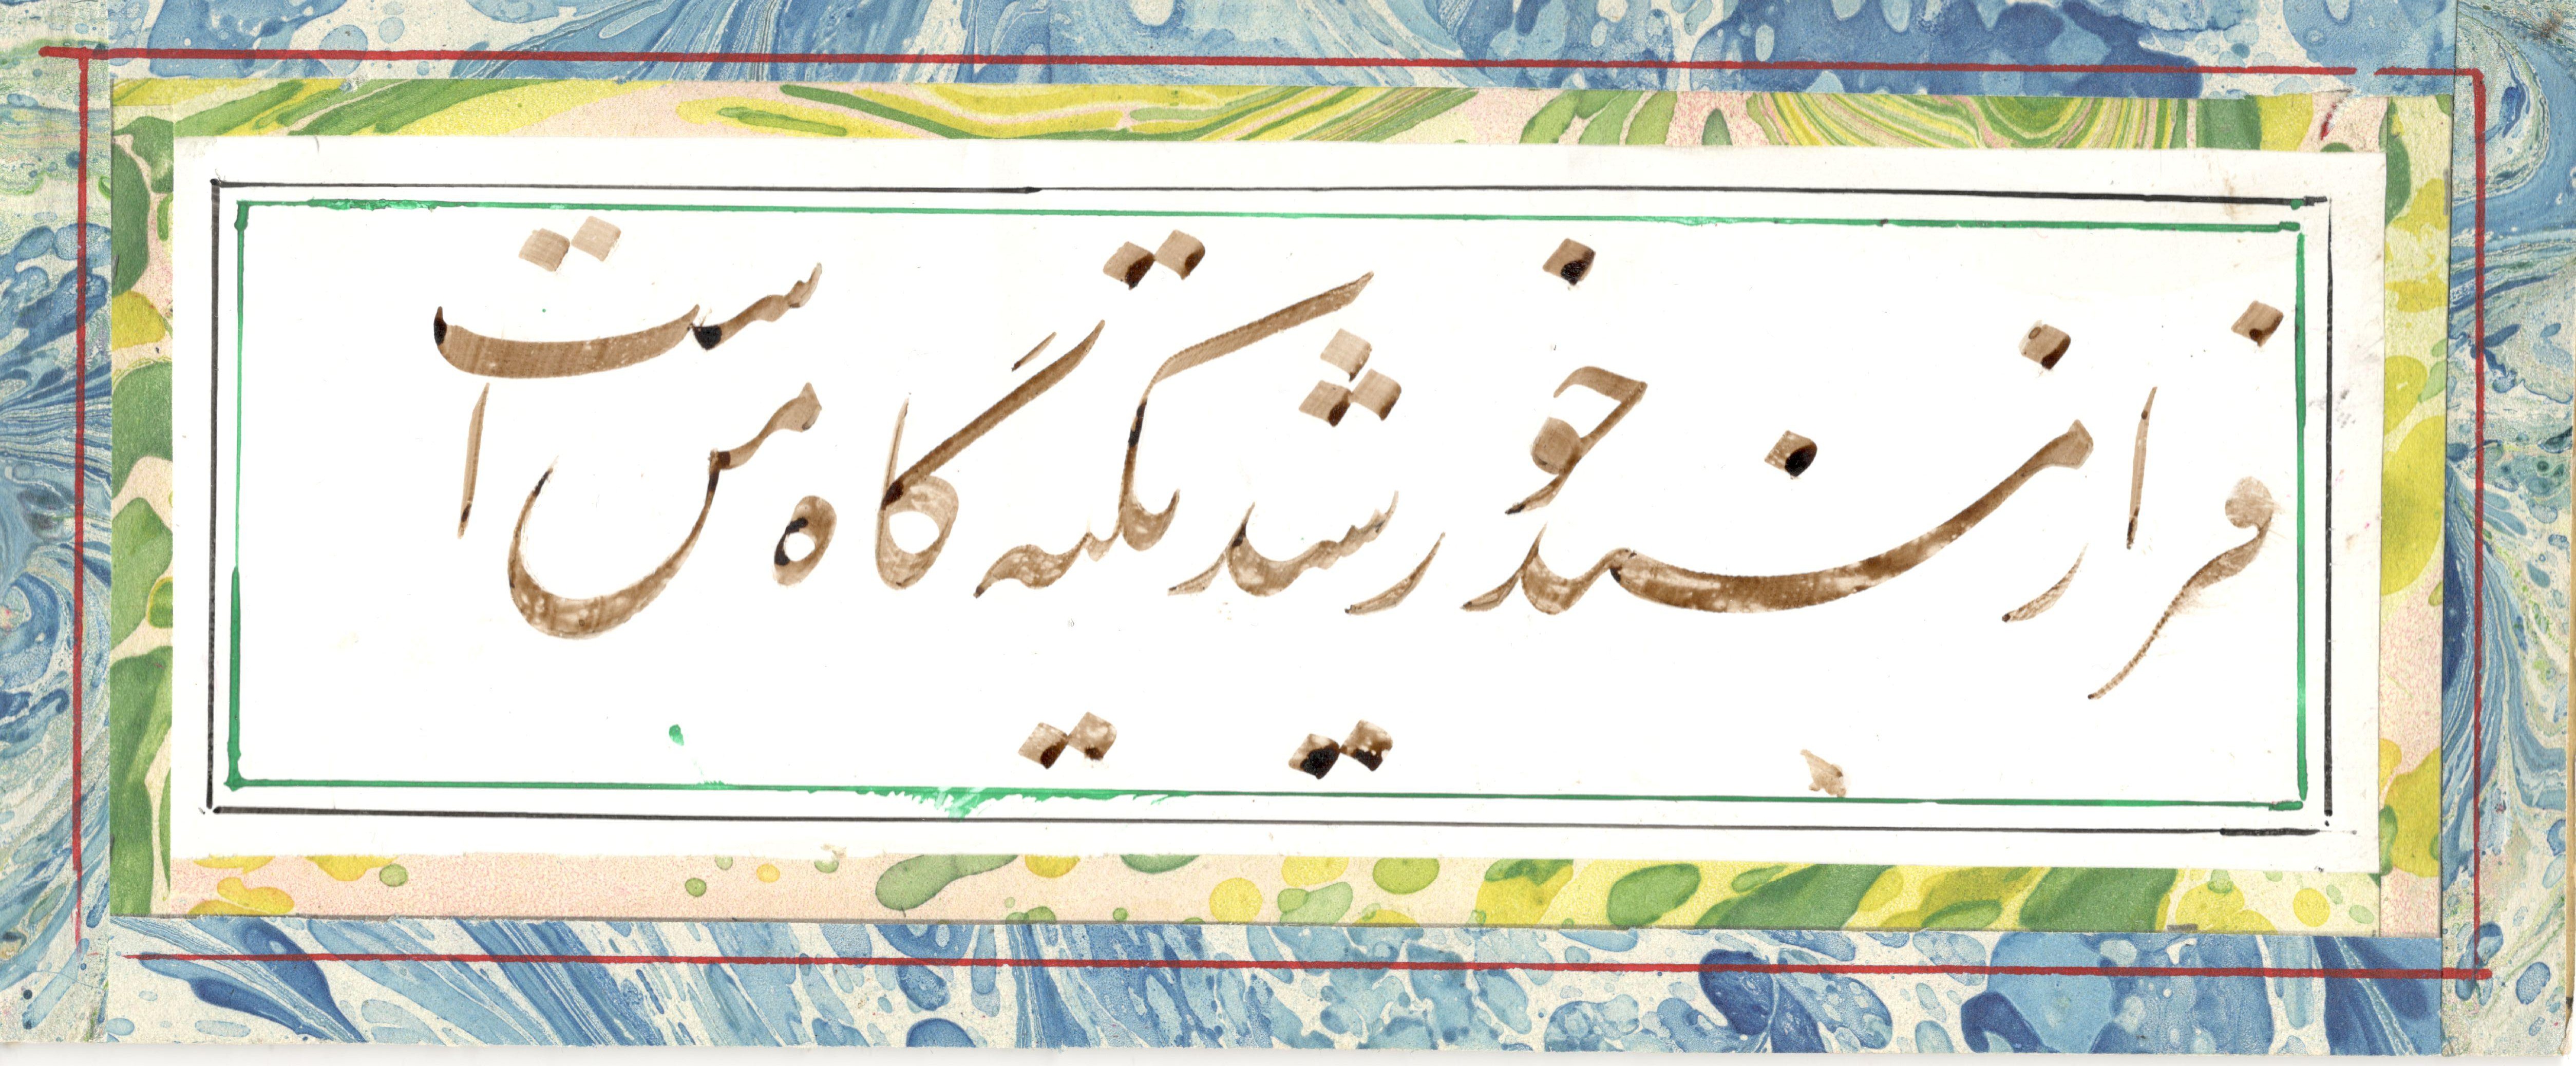 فراز مسند خورشید تکیه گاه من است